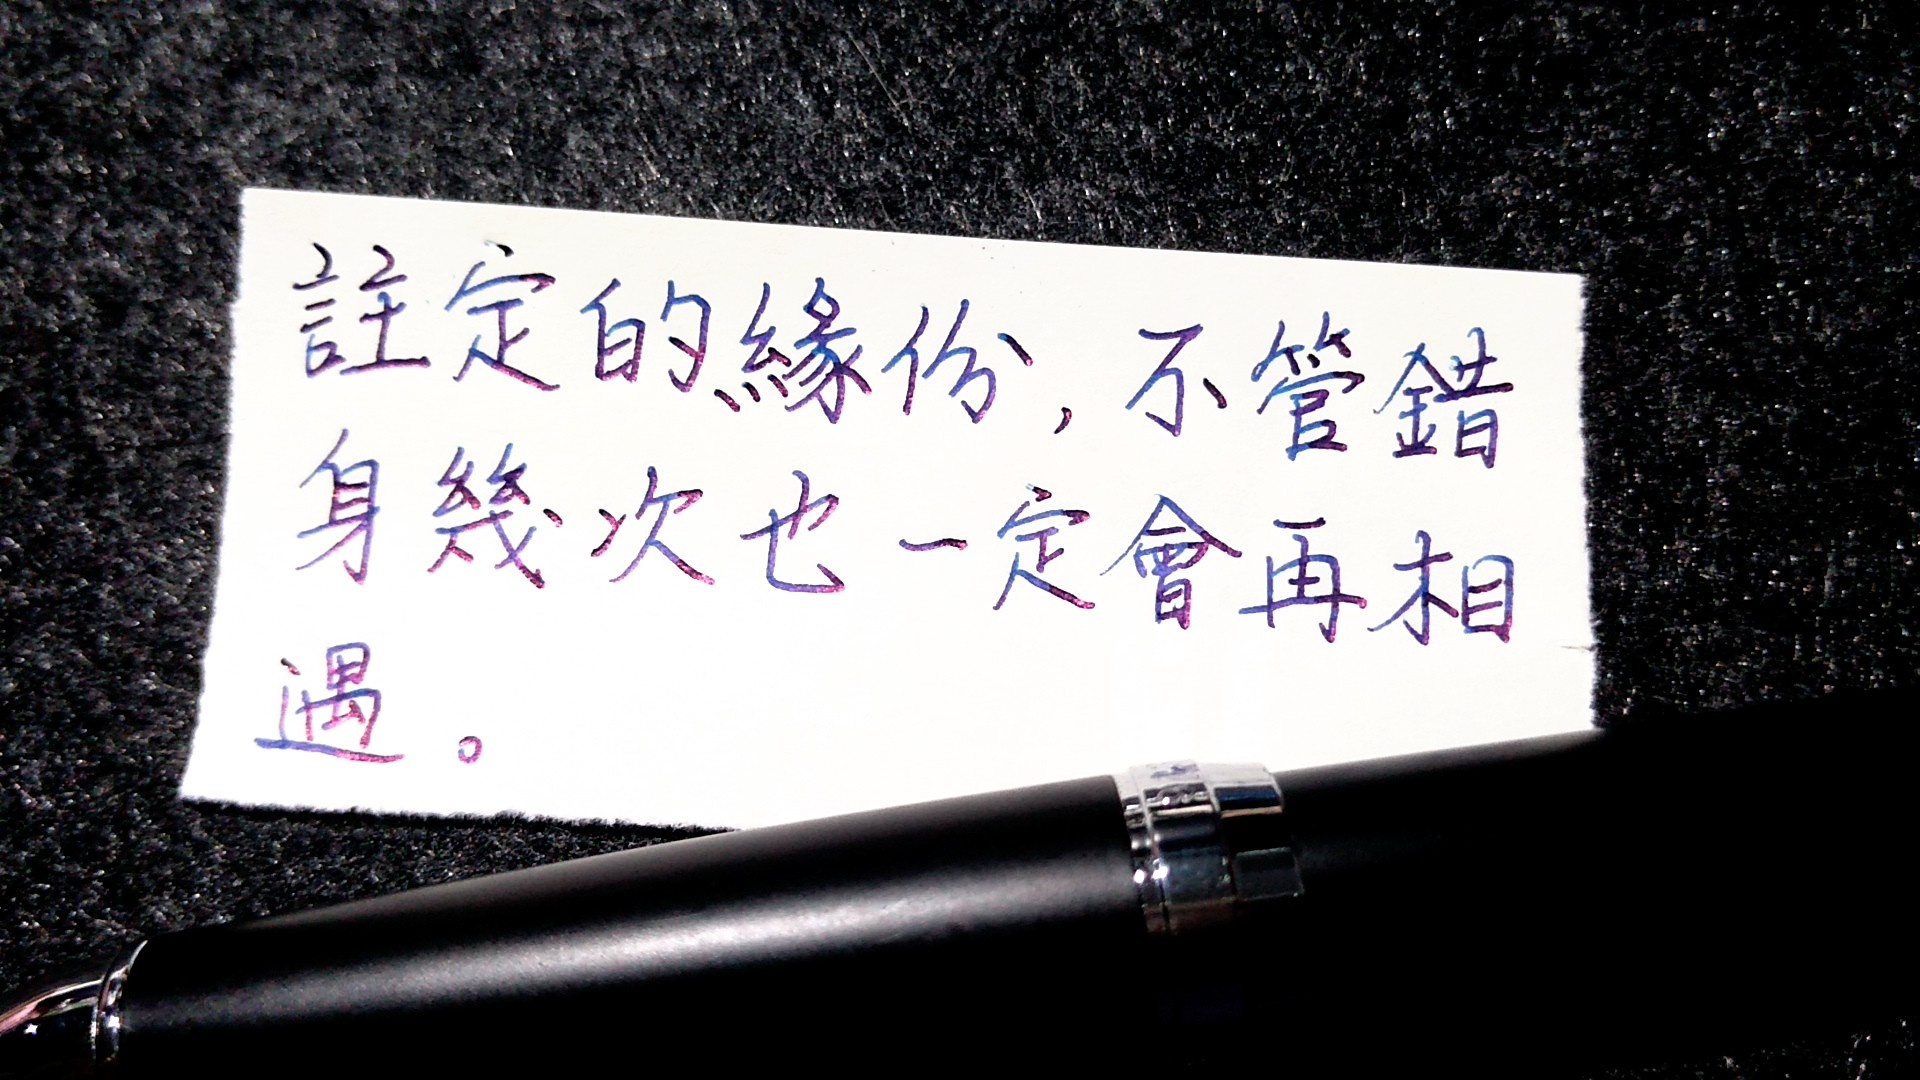 註定的緣份，不管錯
身幾次也一定會再相
遇。